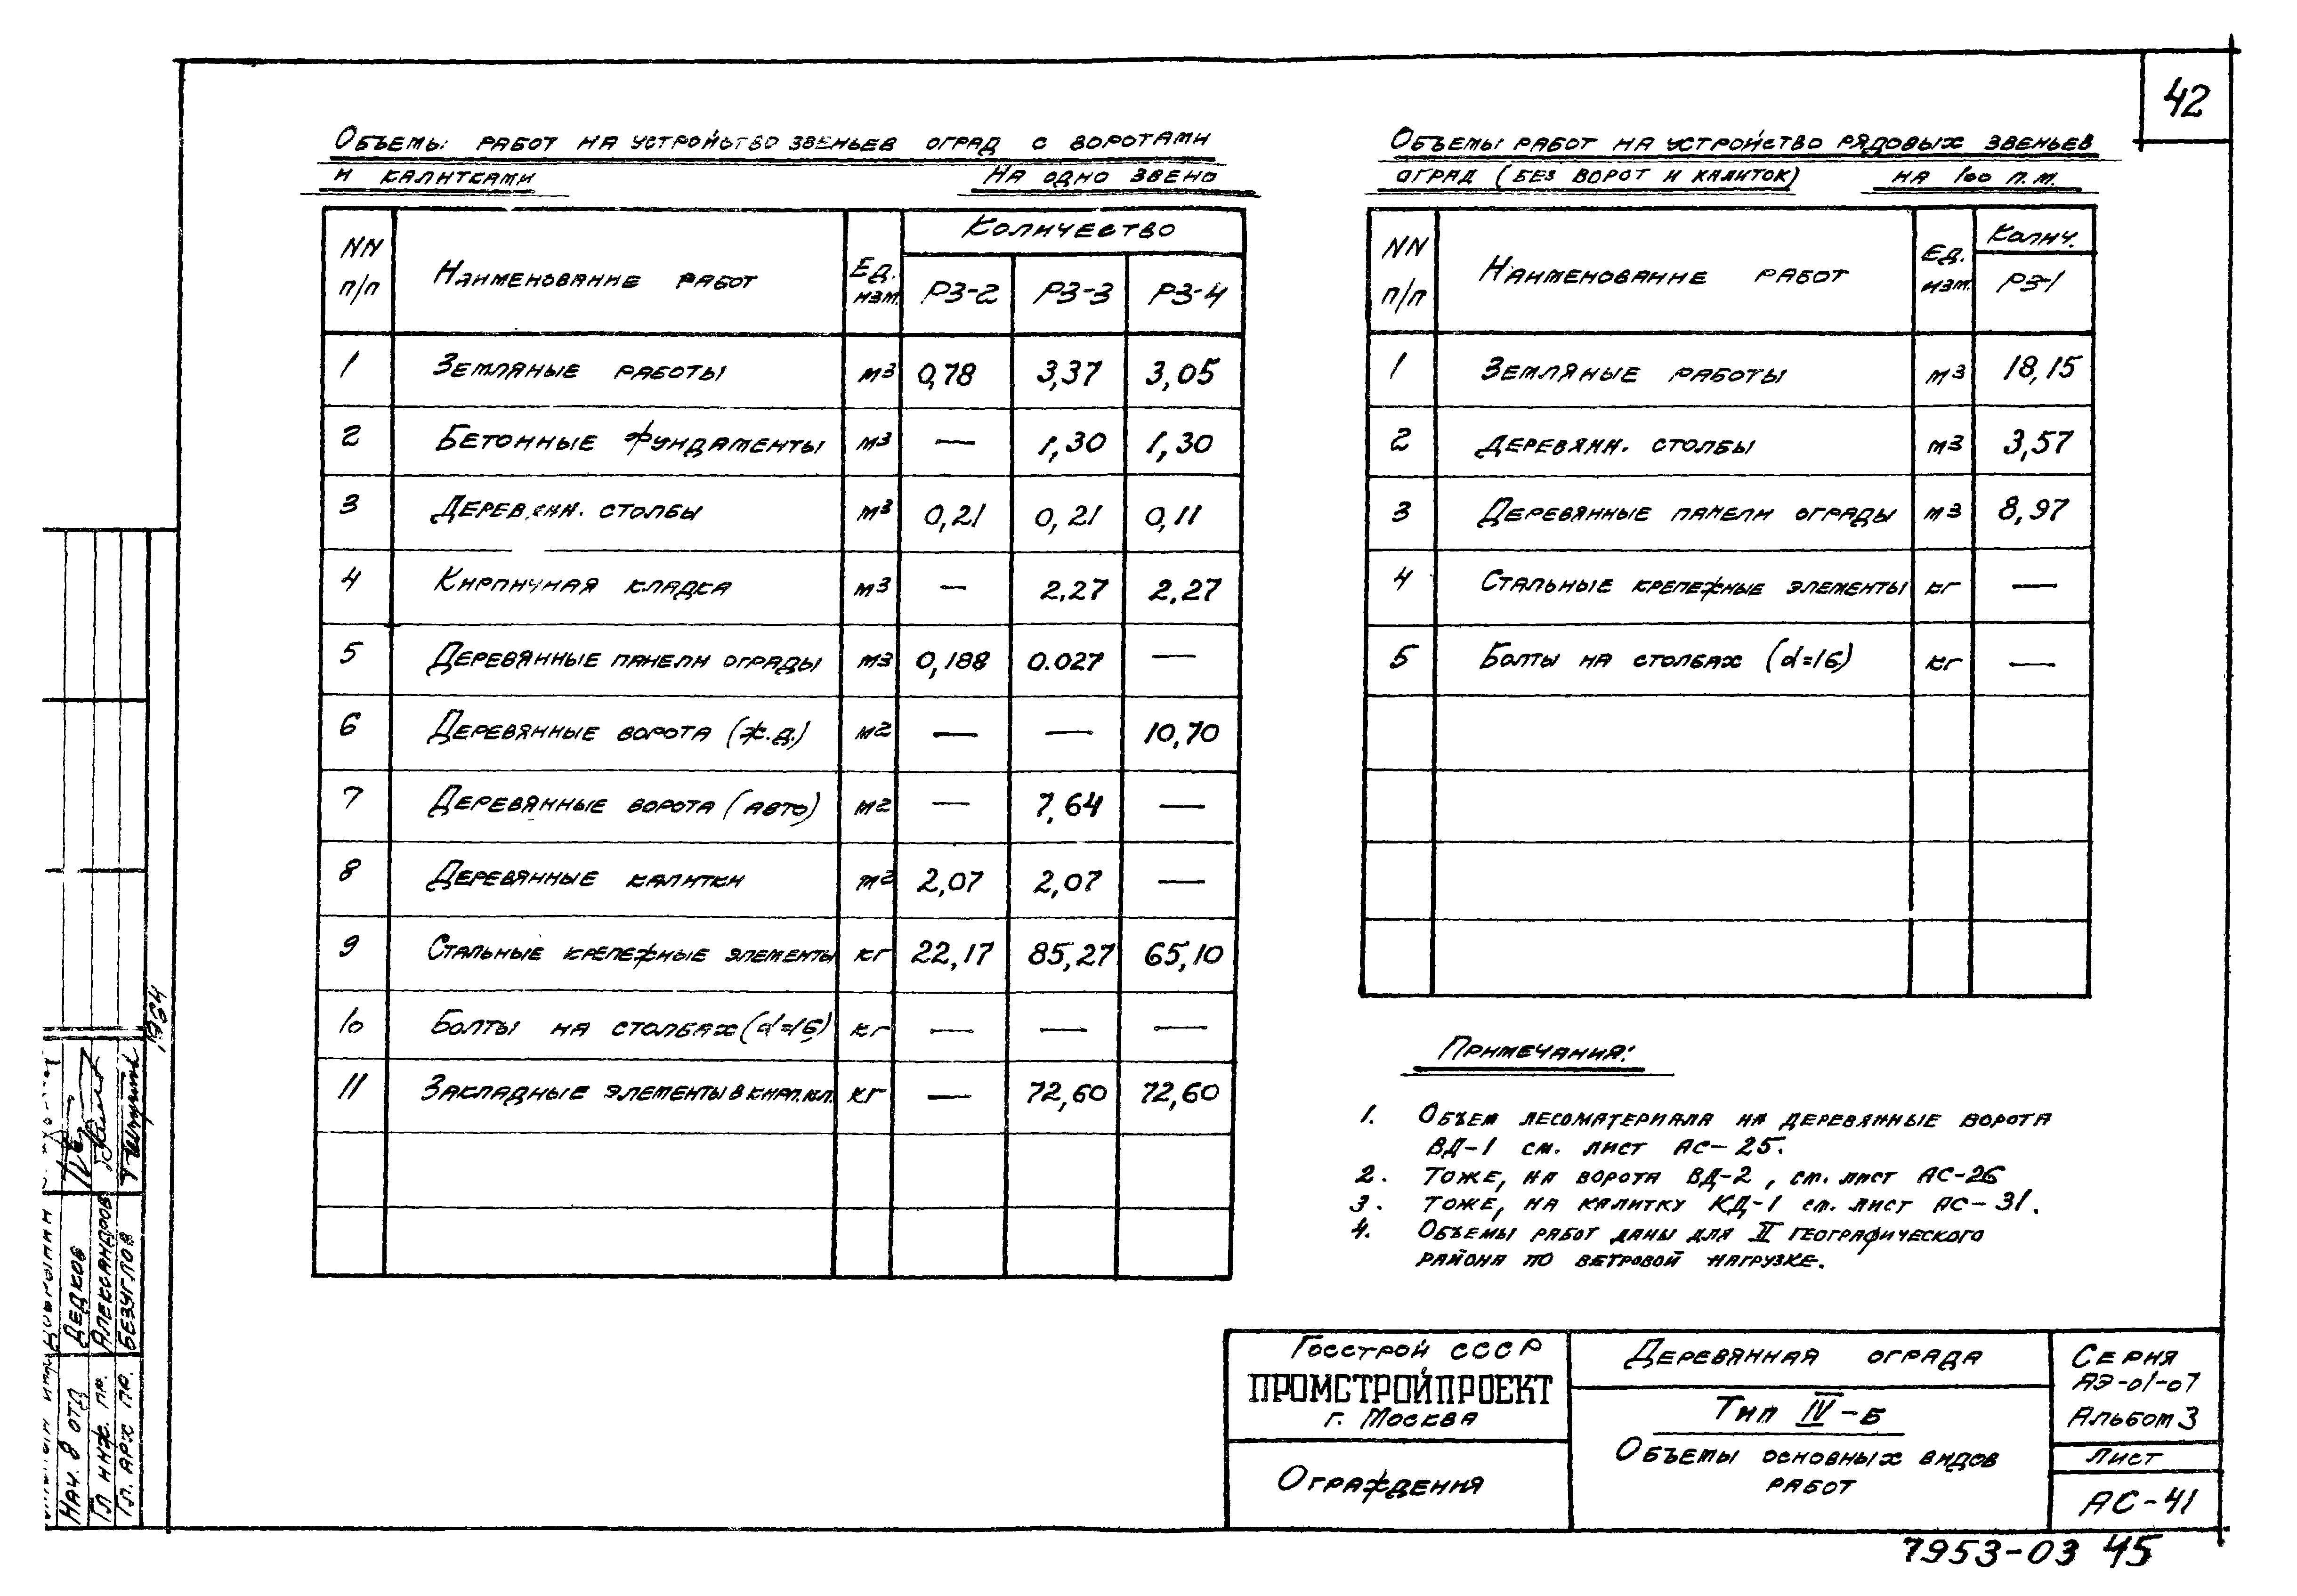 42
Объемы работ на устройство звеньев оград с воротами
и калитками На одно звено
NN п/п Наименование работ Ед. изм. Количество
РЗ-2 РЗ-3 РЗ-4
1 Земляные работы м3 0,78 3,37 3,05
2 Бетонные фундаменты м3 — 1,30 1,30
3 Деревянн. столбы м3 0,21 0,21 0,11
4 Кирпичная кладка м3 — 2,27 2,27
5 Деревянные панели ограды м3 0,188 0.027 —
6 Деревянные ворота (ж.д.) м2 — — 10,70
7 Деревянные ворота (авто) м2 — 7,64 —
8 Деревянные калитки м2 2,07 2,07 —
9 Стальные крепежные элементы кг 22,17 85,27 65,10
10 Болты на столбах (d=16) кг — — —
11 Закладные элементы в кирп.кл. кг — 72,60 72,60
Объемы работ на устройство рядовых звеньев
оград (без ворот и калиток) на 100 п.м.
NN п/п Наименование работ Ед. изм. Колич.
РЗ-1
1 Земляные работы м3 18,15
2 Деревянн. столбы м3 3,57
3 Деревянные панели ограды м3 8,97
4 Стальные крепежные элементы кг —
5 Болты на столбах (d=16) кг —
Примечания:
1. Объем лесоматериала на деревянные ворота
ВД-1 см. лист АС-25.
2. Тоже, на ворота ВД-2, см. лист АС-26
3. Тоже, на калитку КД-1 см. лист АС-31.
4. Объемы работ даны для II географического
района по ветровой нагрузке.
Госстрой СССР
ПРОМСТРОЙПРОЕКТ
г. Москва
Ограждения
Деревянная ограда
Тип IV-Б
Объемы основных видов
работ
Серия
АЭ-01-07
Альбом 3
Лист
АС-41
7953-03 45
Нач. 8 отд Дедков
Гл инж. пр. Александров
Гл. арх пр. Безуглов
1964